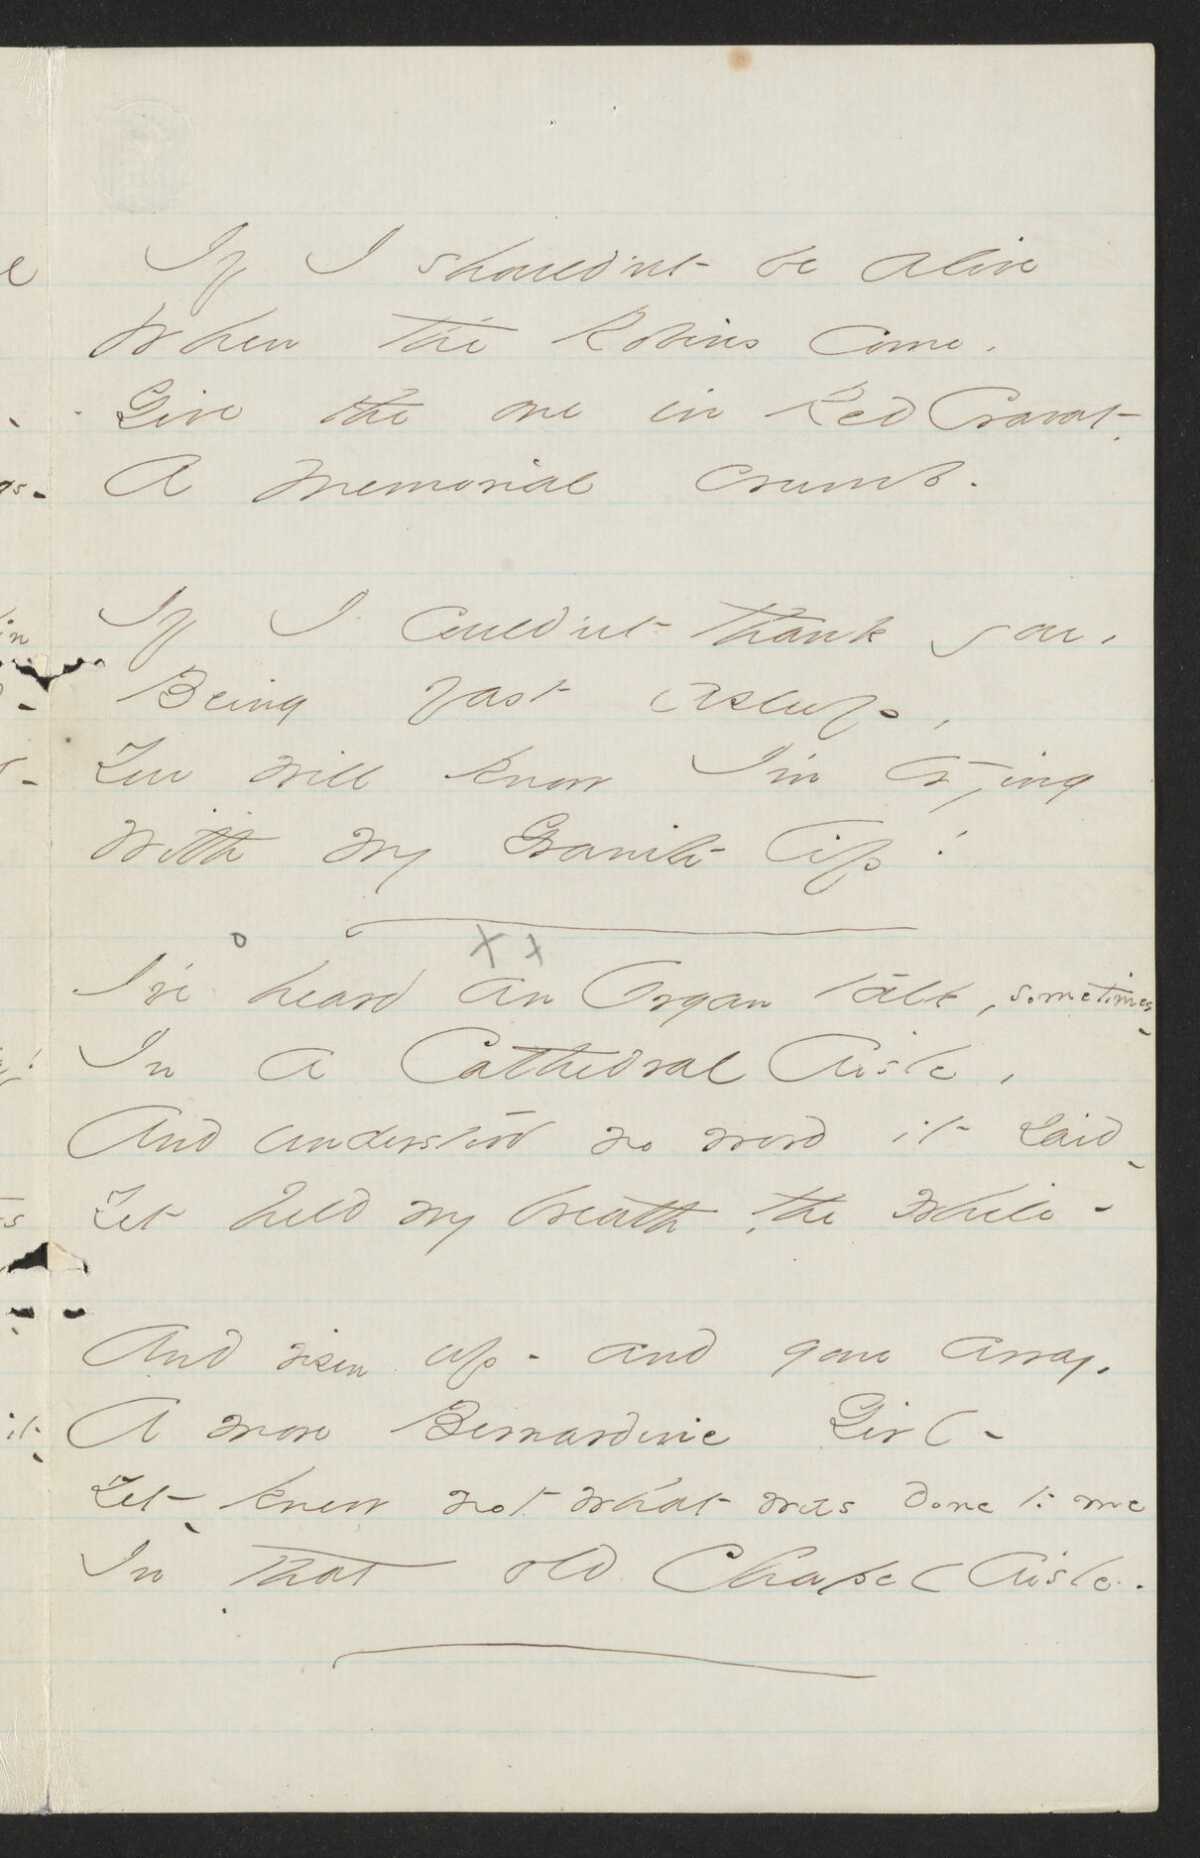 If I should'nt be alive
When the Robins come,
Give the one in Red Cravat,
A Memorial crumb.
If I could'nt thank you,
Being fast asleep,
You will know I'm trying
With my Granite lip!
I've heard an Organ talk, sometimes -
In a Cathedral Aisle,
And understood no word it said -
Yet held my breath, the while -
And risen up - and gone away,
A more Bernardine Girl -
Yet - knew not what was done to me
In that old Chapel Aisle.